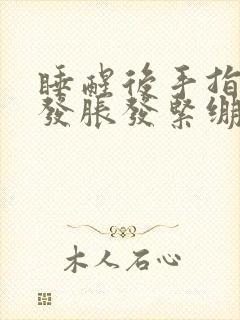 睡醒後手指
發脹發緊繃
木人石心